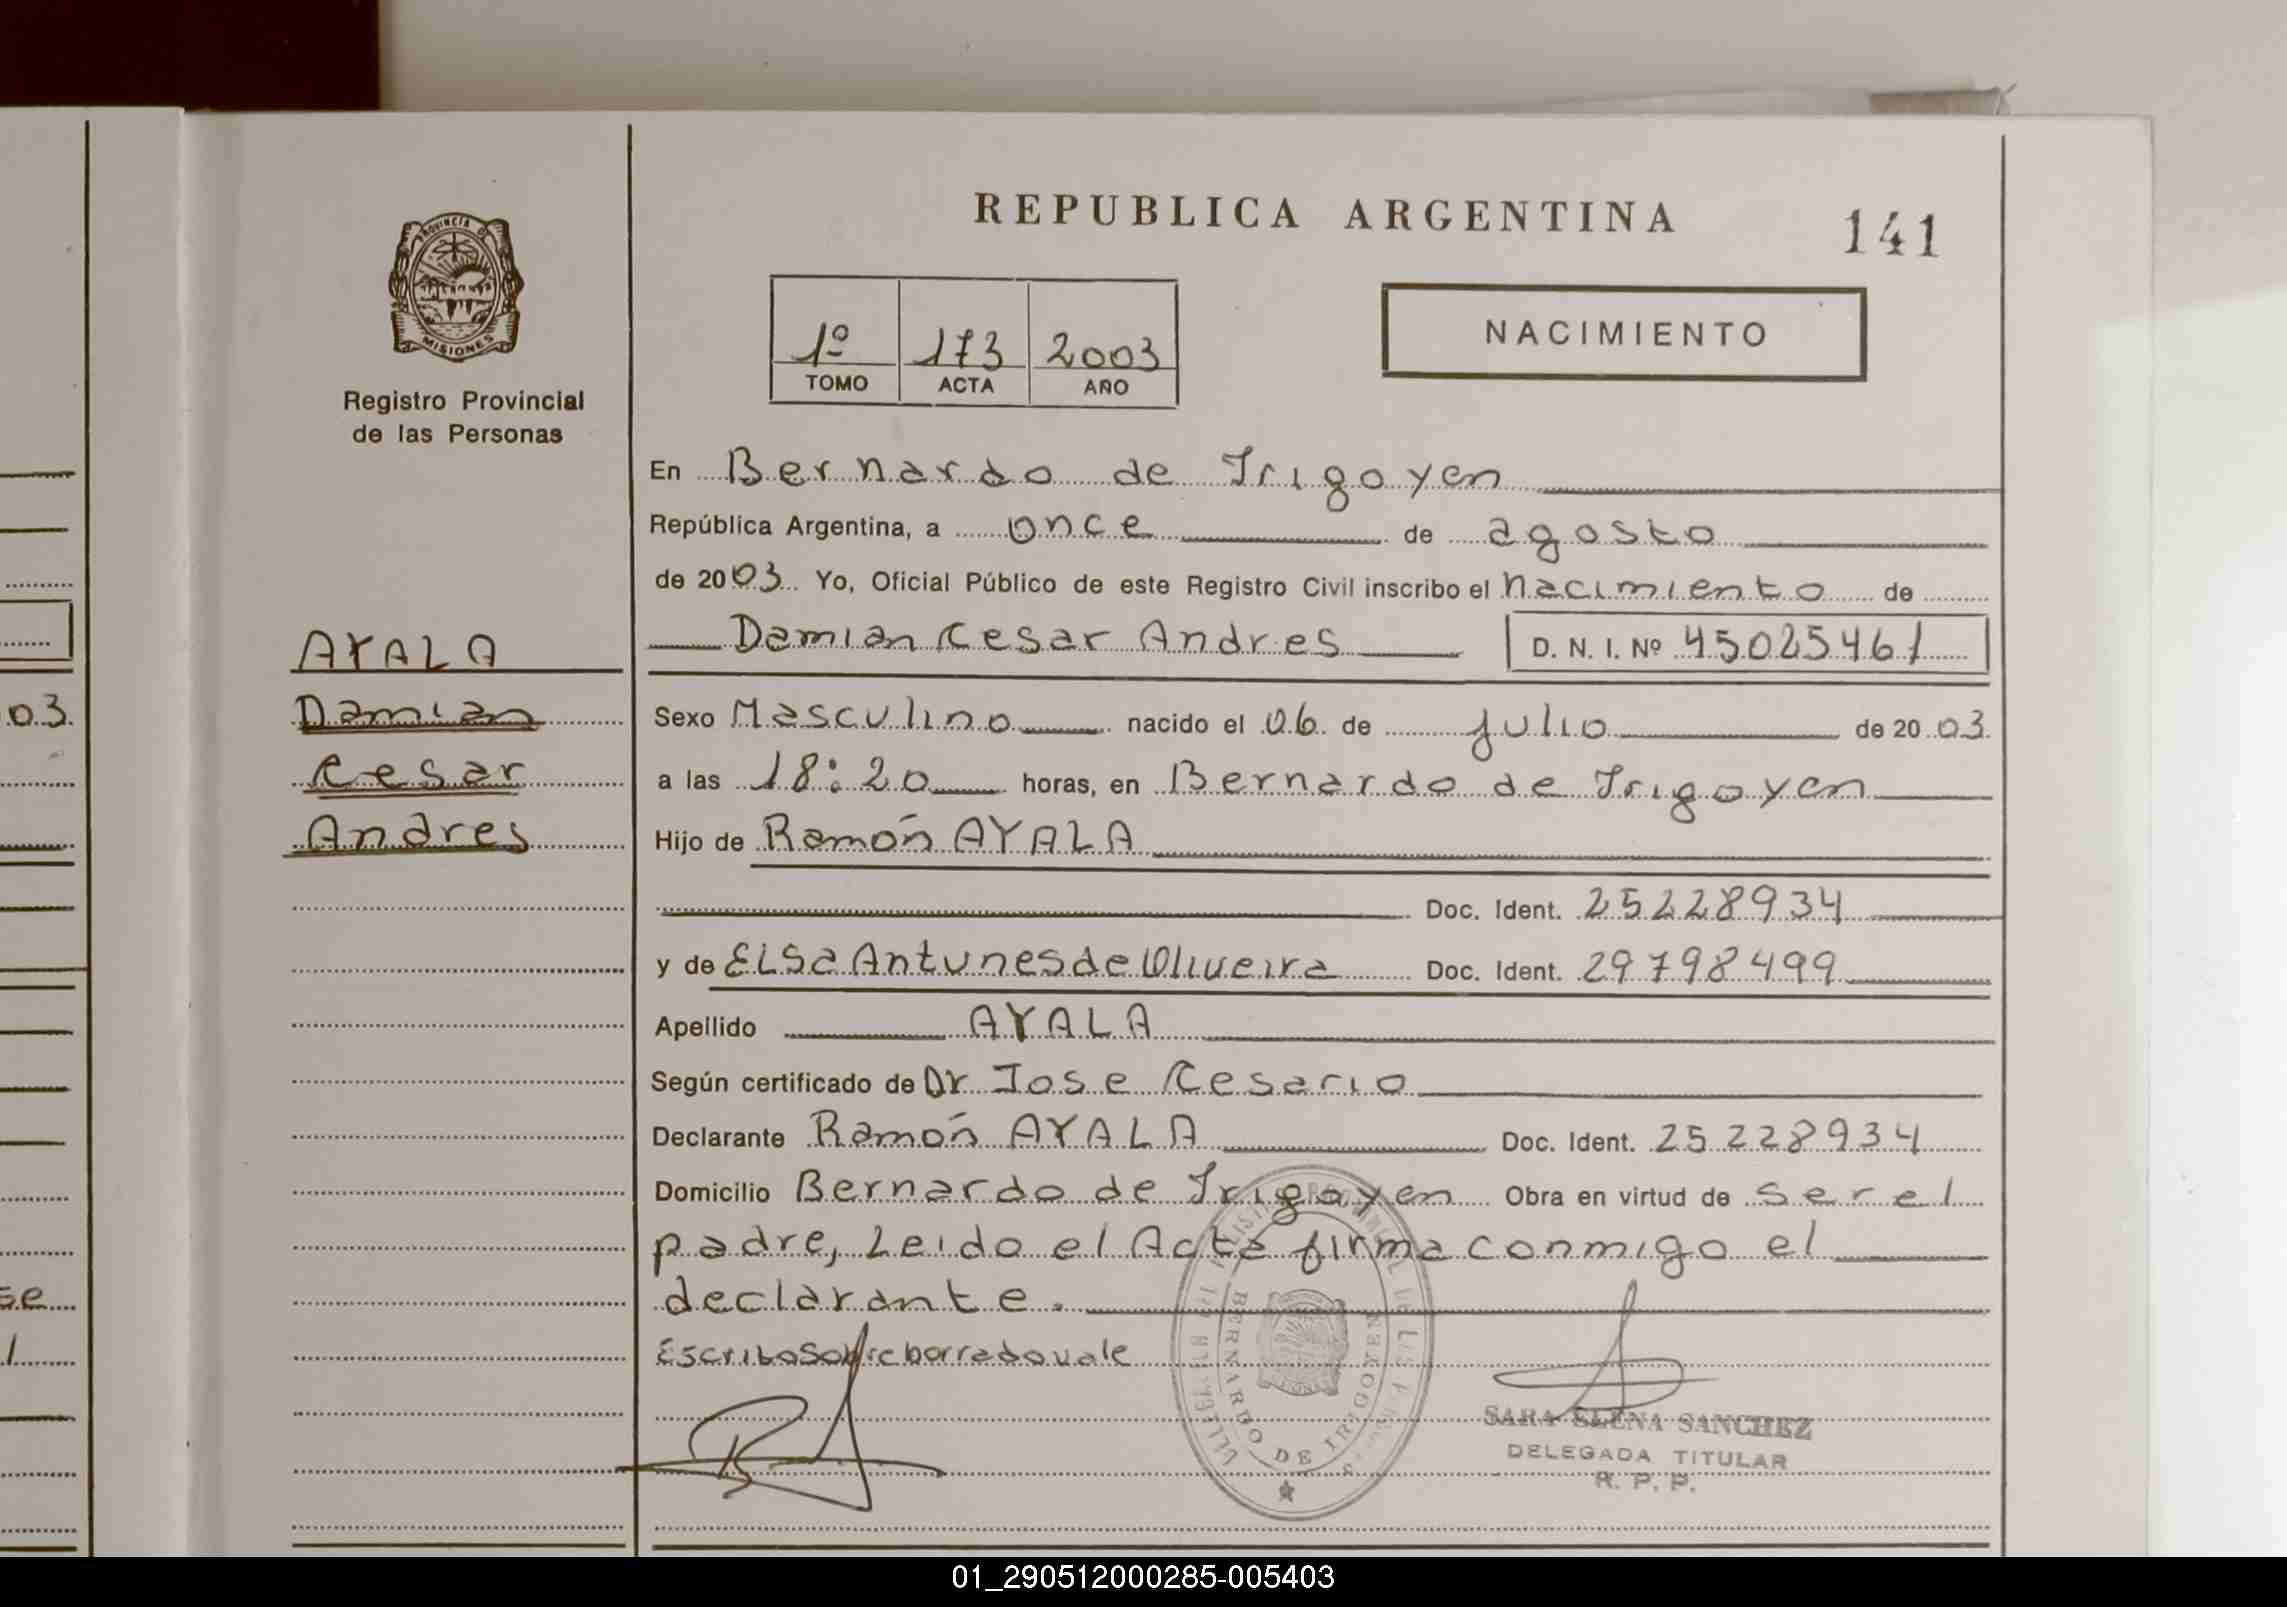 REPUBLICA ARGENTINA
141
PROVINCIA DE
MISIONES
Registro Provincial
de las Personas
1º 173 2003
TOMO ACTA AÑO
NACIMIENTO
En Bernardo de Irigoyen
República Argentina, a once de agosto
de 2003 Yo, Oficial Público de este Registro Civil inscribo el nacimiento de
Damian Cesar Andres D. N. I. Nº 45025461
AYALA
Damian
Cesar
Andres
Sexo Masculino nacido el 06 de julio de 2003
a las 18:20 horas, en Bernardo de Irigoyen
Hijo de Ramón AYALA
Doc. Ident. 25228934
y de ELSa Antunes de Oliveira Doc. Ident. 29798499
Apellido AYALA
Según certificado de Dr Jose Cesario
Declarante Ramón AYALA Doc. Ident. 25228934
Domicilio Bernardo de Irigoyen Obra en virtud de ser el
padre, Leido el Acta firma conmigo el
declarante.
Escrito sobre borrado vale
BERNARDO DE IRIGOYEN
SARA ELENA SANCHEZ
DELEGADA TITULAR
R. P. P.
03
se
1
01_290512000285-005403